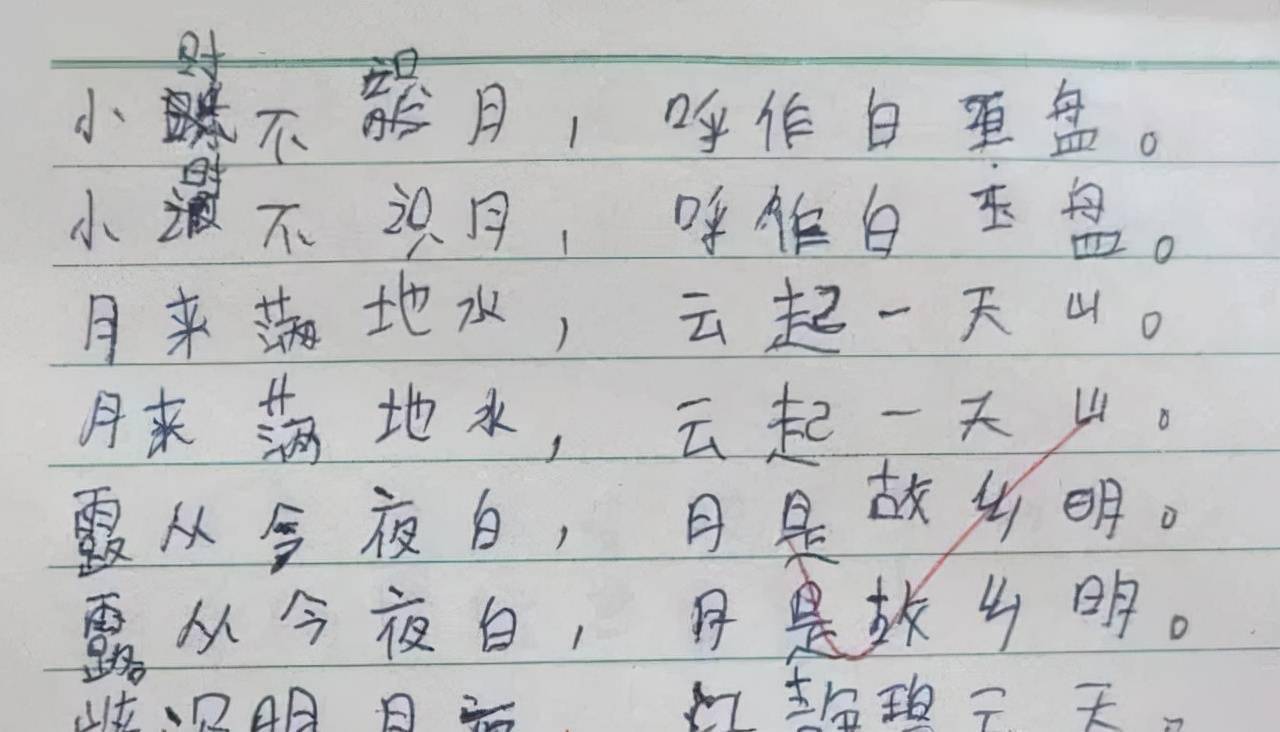 小时不识月，呼作白玉盘。
小时不识月，呼作白玉盘。
月来满地水，云起一天山。
月来满地水，云起一天山。
露从今夜白，月是故乡明。
露从今夜白，月是故乡明。
沉明月夜，江静碧云天。